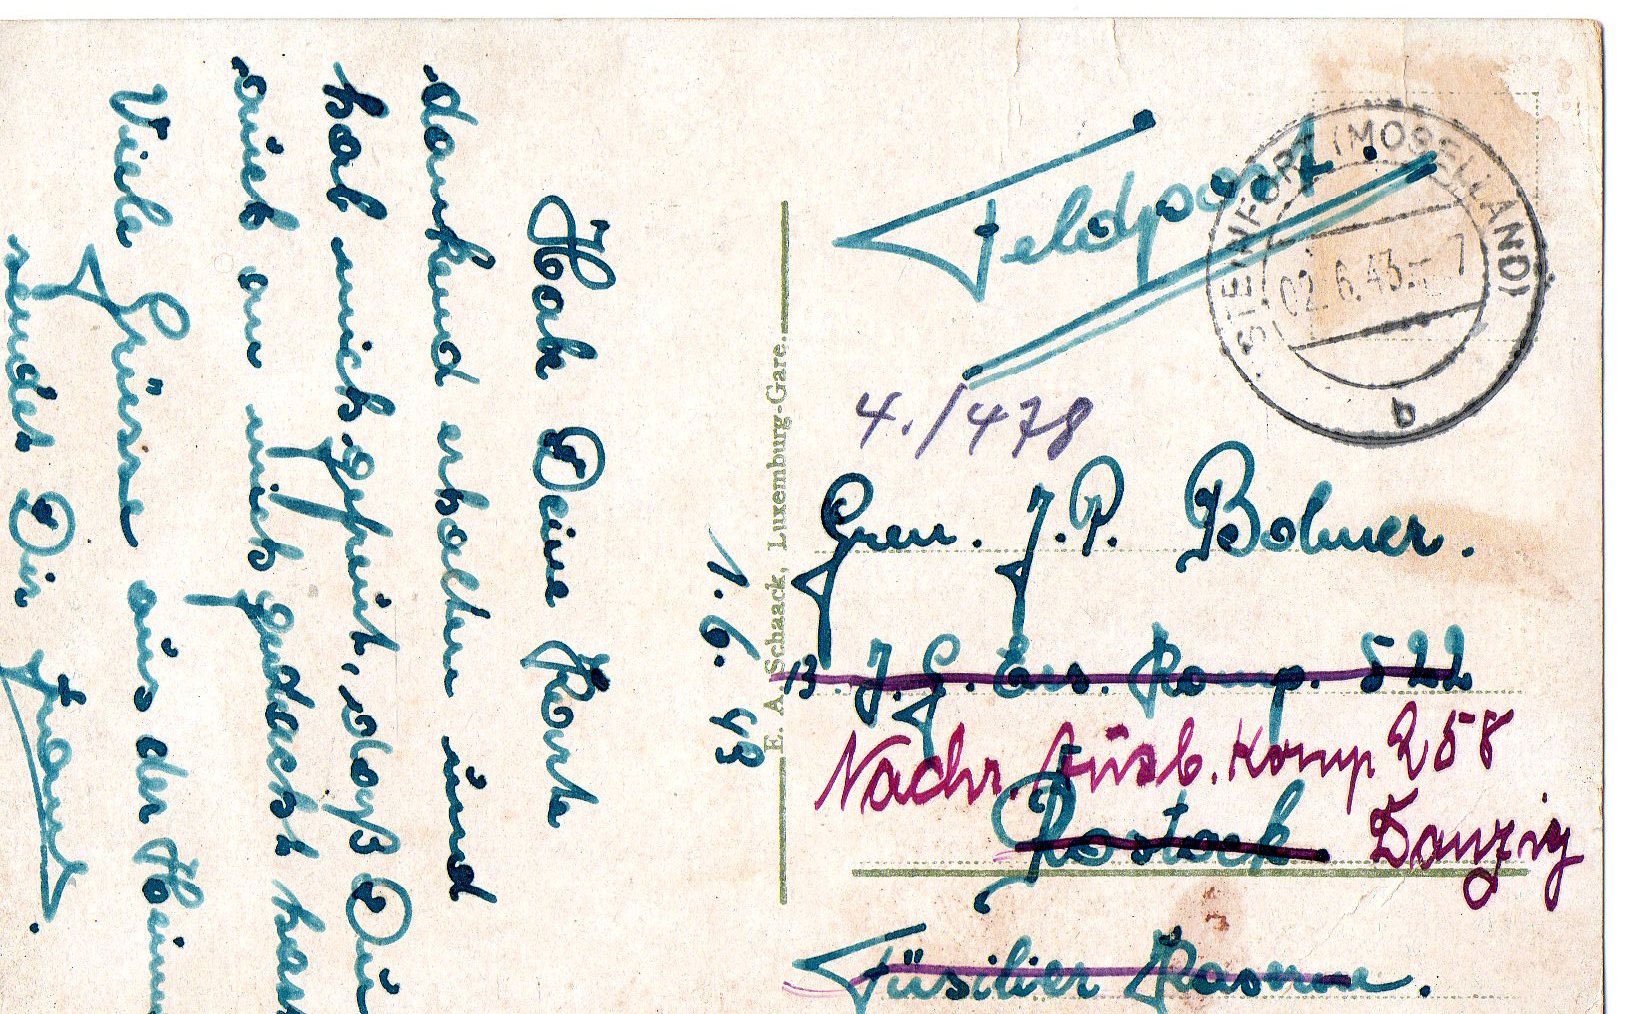 1. 6. 43
Hab Deine Karte
dankend erhalten und
hab mich gefreut, daß Du
auch an mich gedacht has
Viele Grüsse aus der Heim
sendet Dir
E. A. Schaack, Luxemburg-Gare.
Feldpost.
STEINFORT (MOSELLAND)
02.6.43.-7
a
4./478
Gren. J. P. Bohmer.
13. J. G. Ers. Komp. 522
Nachr. Ausb. Komp 258
Rostock Danzig
Füsilier Kaserne.